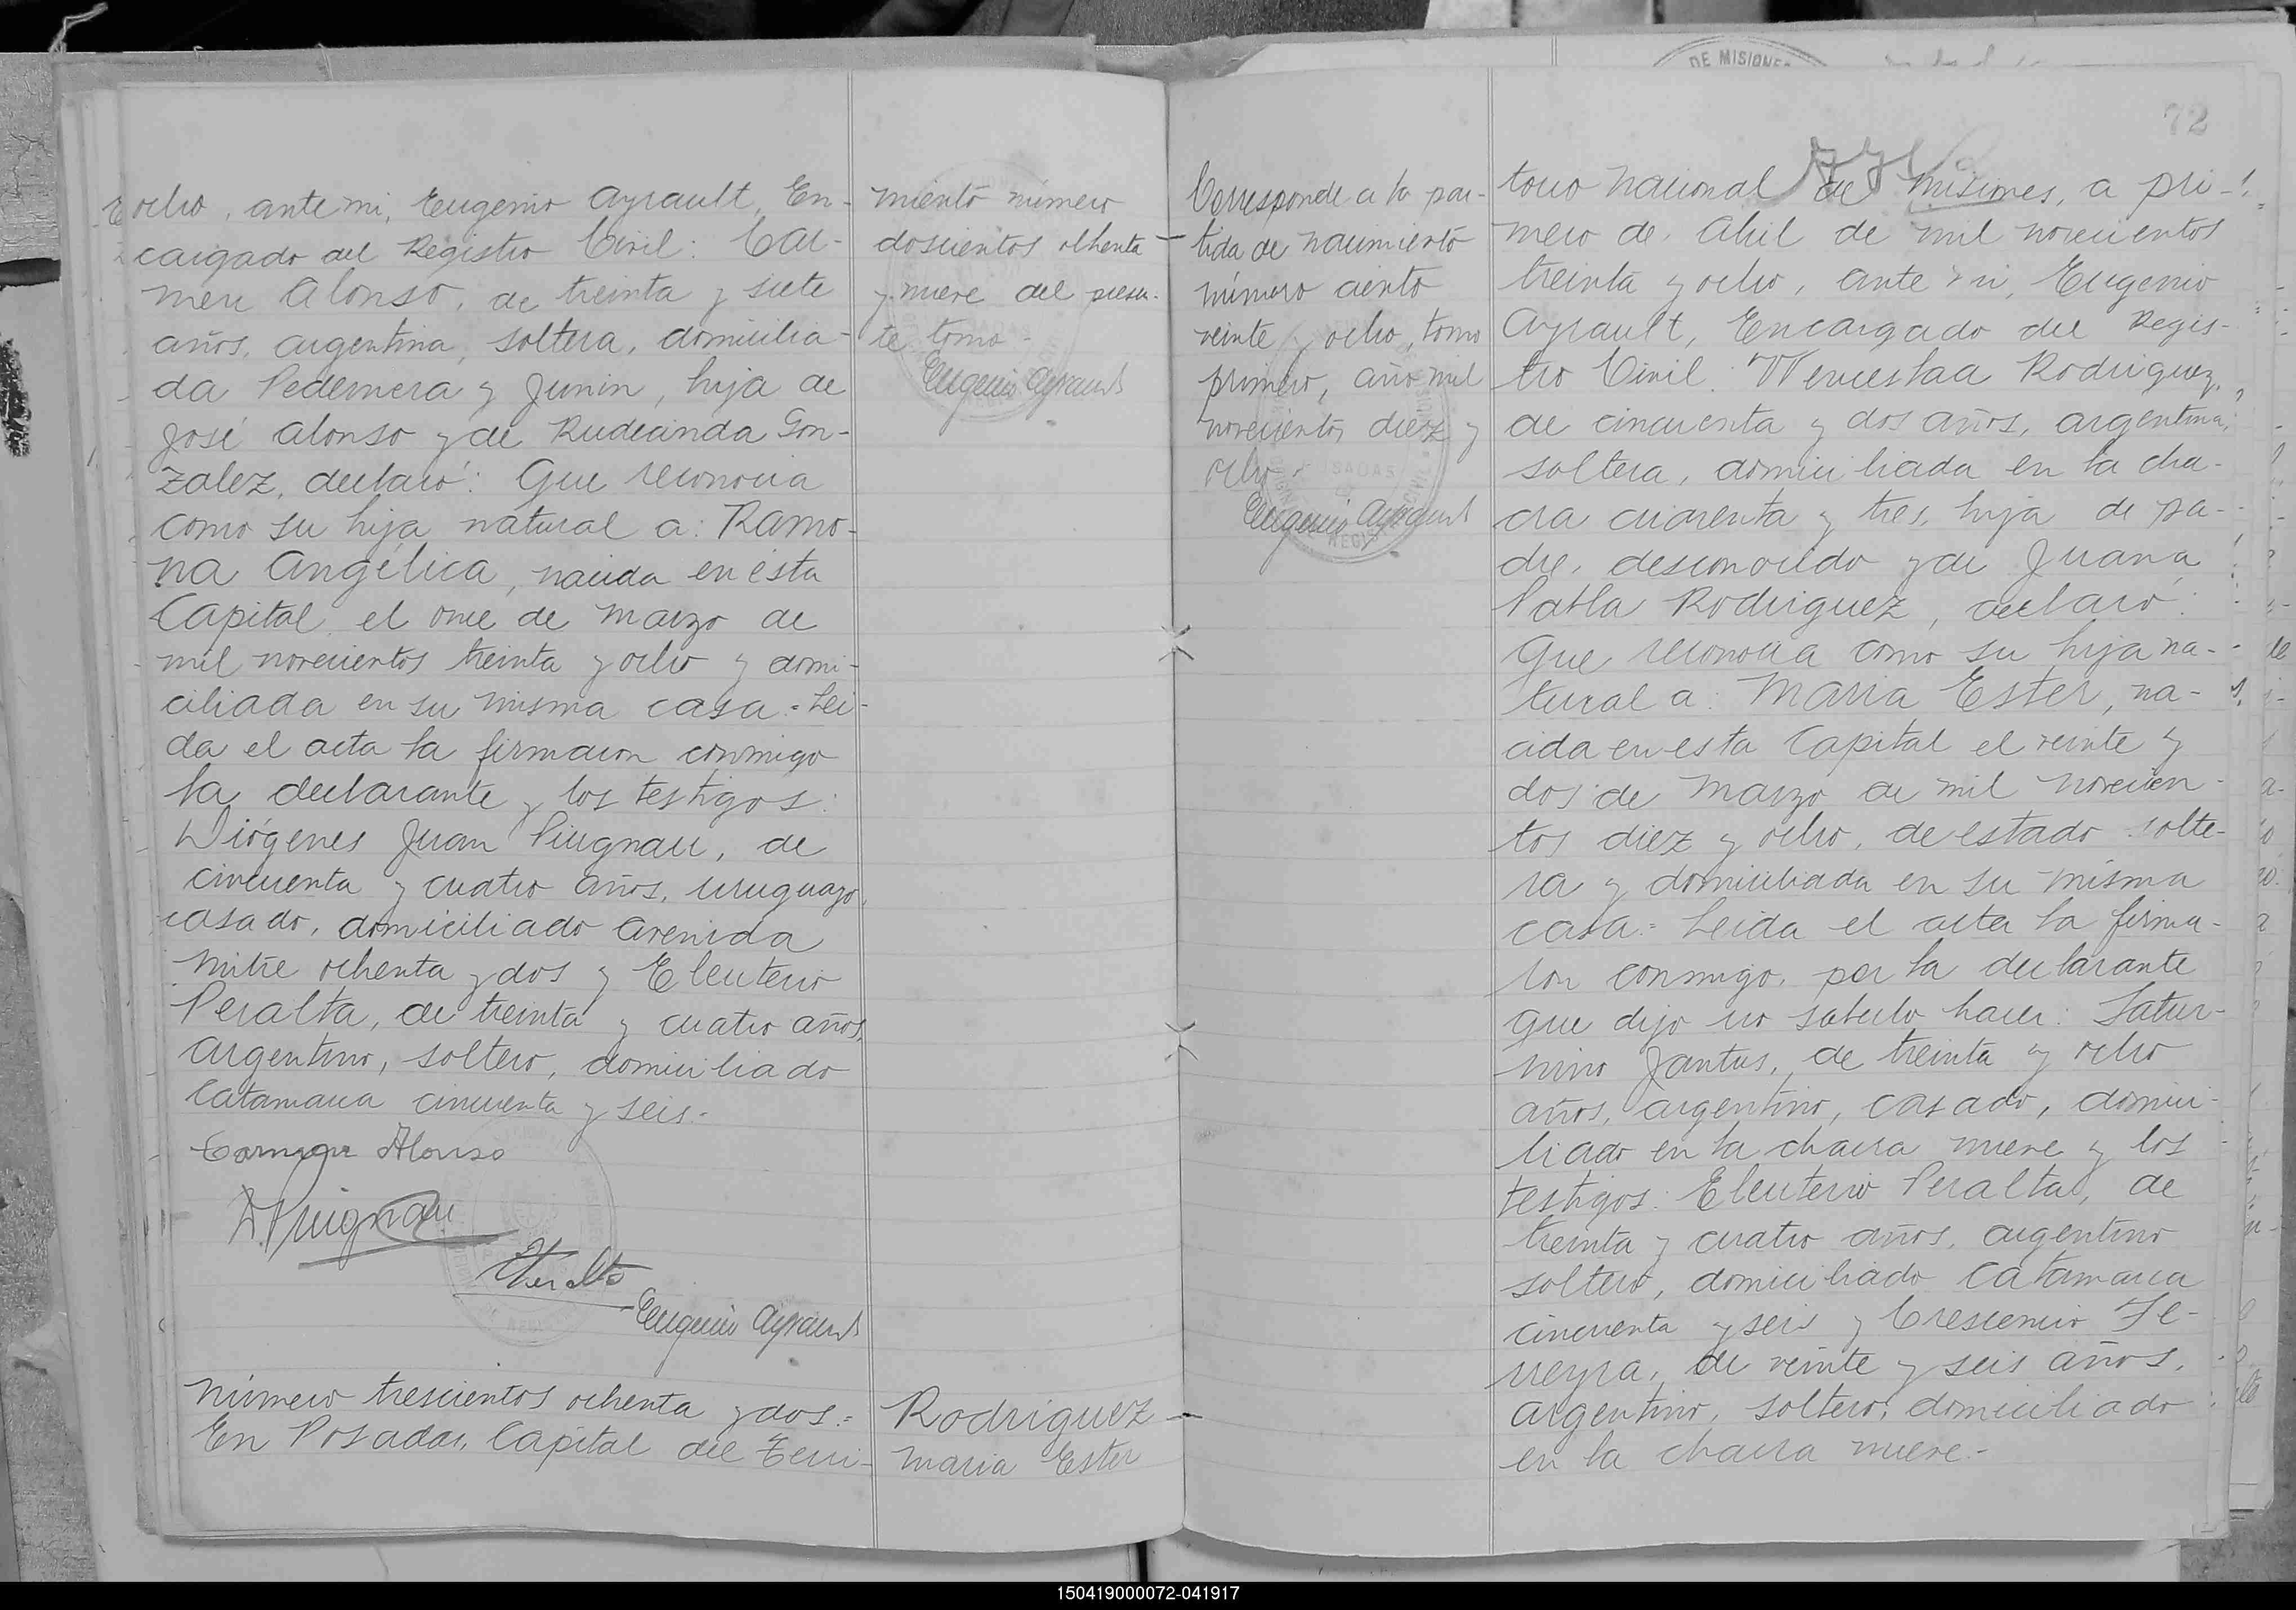 ocho, ante mi, Eugenio Ayrault, En-
cargado del Registro Civil: Car-
men Alonso, de treinta y siete
años, argentina, soltera, domicilia-
da Pedernera y Junin, hija de
José Alonso y de Rudecinda Gon-
zalez, declaró: Que reconocia
como su hija natural a: Ramo-
na Angélica, nacida en ésta
Capital el once de marzo de
mil novecientos treinta y ocho y domi-
ciliada en su misma casa.= Lei-
da el acta la firmaron conmigo
la declarante y los testigos:
Diógenes Juan Puignau, de
cincuenta y cuatro años, uruguayo,
casado, domiciliado Avenida
Mitre ochenta y dos y Eleuterio
Peralta, de treinta y cuatro años,
argentino, soltero, domiciliado
Catamarca cincuenta y seis.-
Carmen Alonso
D. Puignau
EPeralta
Eugenio Ayrault
Número trescientos ochenta y dos.=
En Posadas, Capital del Terri-
miento número
doscientos ochenta
y nueve del presen-
te tomo.-
Eugenio Ayrault
Rodriguez
Maria Ester
DE MISIONES
72
Corresponde a la par-
tida de nacimiento
número ciento
veinte y ocho, tomo
primero, año mil
novecientos diez y
ocho.-
Eugenio Ayrault
torio Nacional de Misiones, a pri-
mero de Abril de mil novecientos
treinta y ocho, ante mi, Eugenio
Ayrault, Encargado del Regis-
tro Civil: Wenceslaa Rodriguez,
de cincuenta y dos años, argentina,
soltera, domiciliada en la cha-
cra cuarenta y tres, hija de pa-
dre desconocido y de Juana
Pabla Rodriguez, declaró:
Que reconocia como su hija na-
tural a: Maria Ester, na-
cida en esta Capital el veinte y
dos de marzo de mil novecien-
tos diez y ocho, de estado solte-
ra y domiciliada en su misma
casa.= Leida el acta la firma-
ron conmigo, por la declarante
que dijo no saberlo hacer: Satur-
nino Jantus, de treinta y ocho
años, argentino, casado, domici-
liado en la chacra nueve y los
testigos: Eleuterio Peralta, de
treinta y cuatro años, argentino
soltero, domiciliado Catamarca
cincuenta y seis y Crescencio Fe-
rreyra, de veinte y seis años,
argentino, soltero, domiciliado
en la chacra nueve.-
150419000072-041917